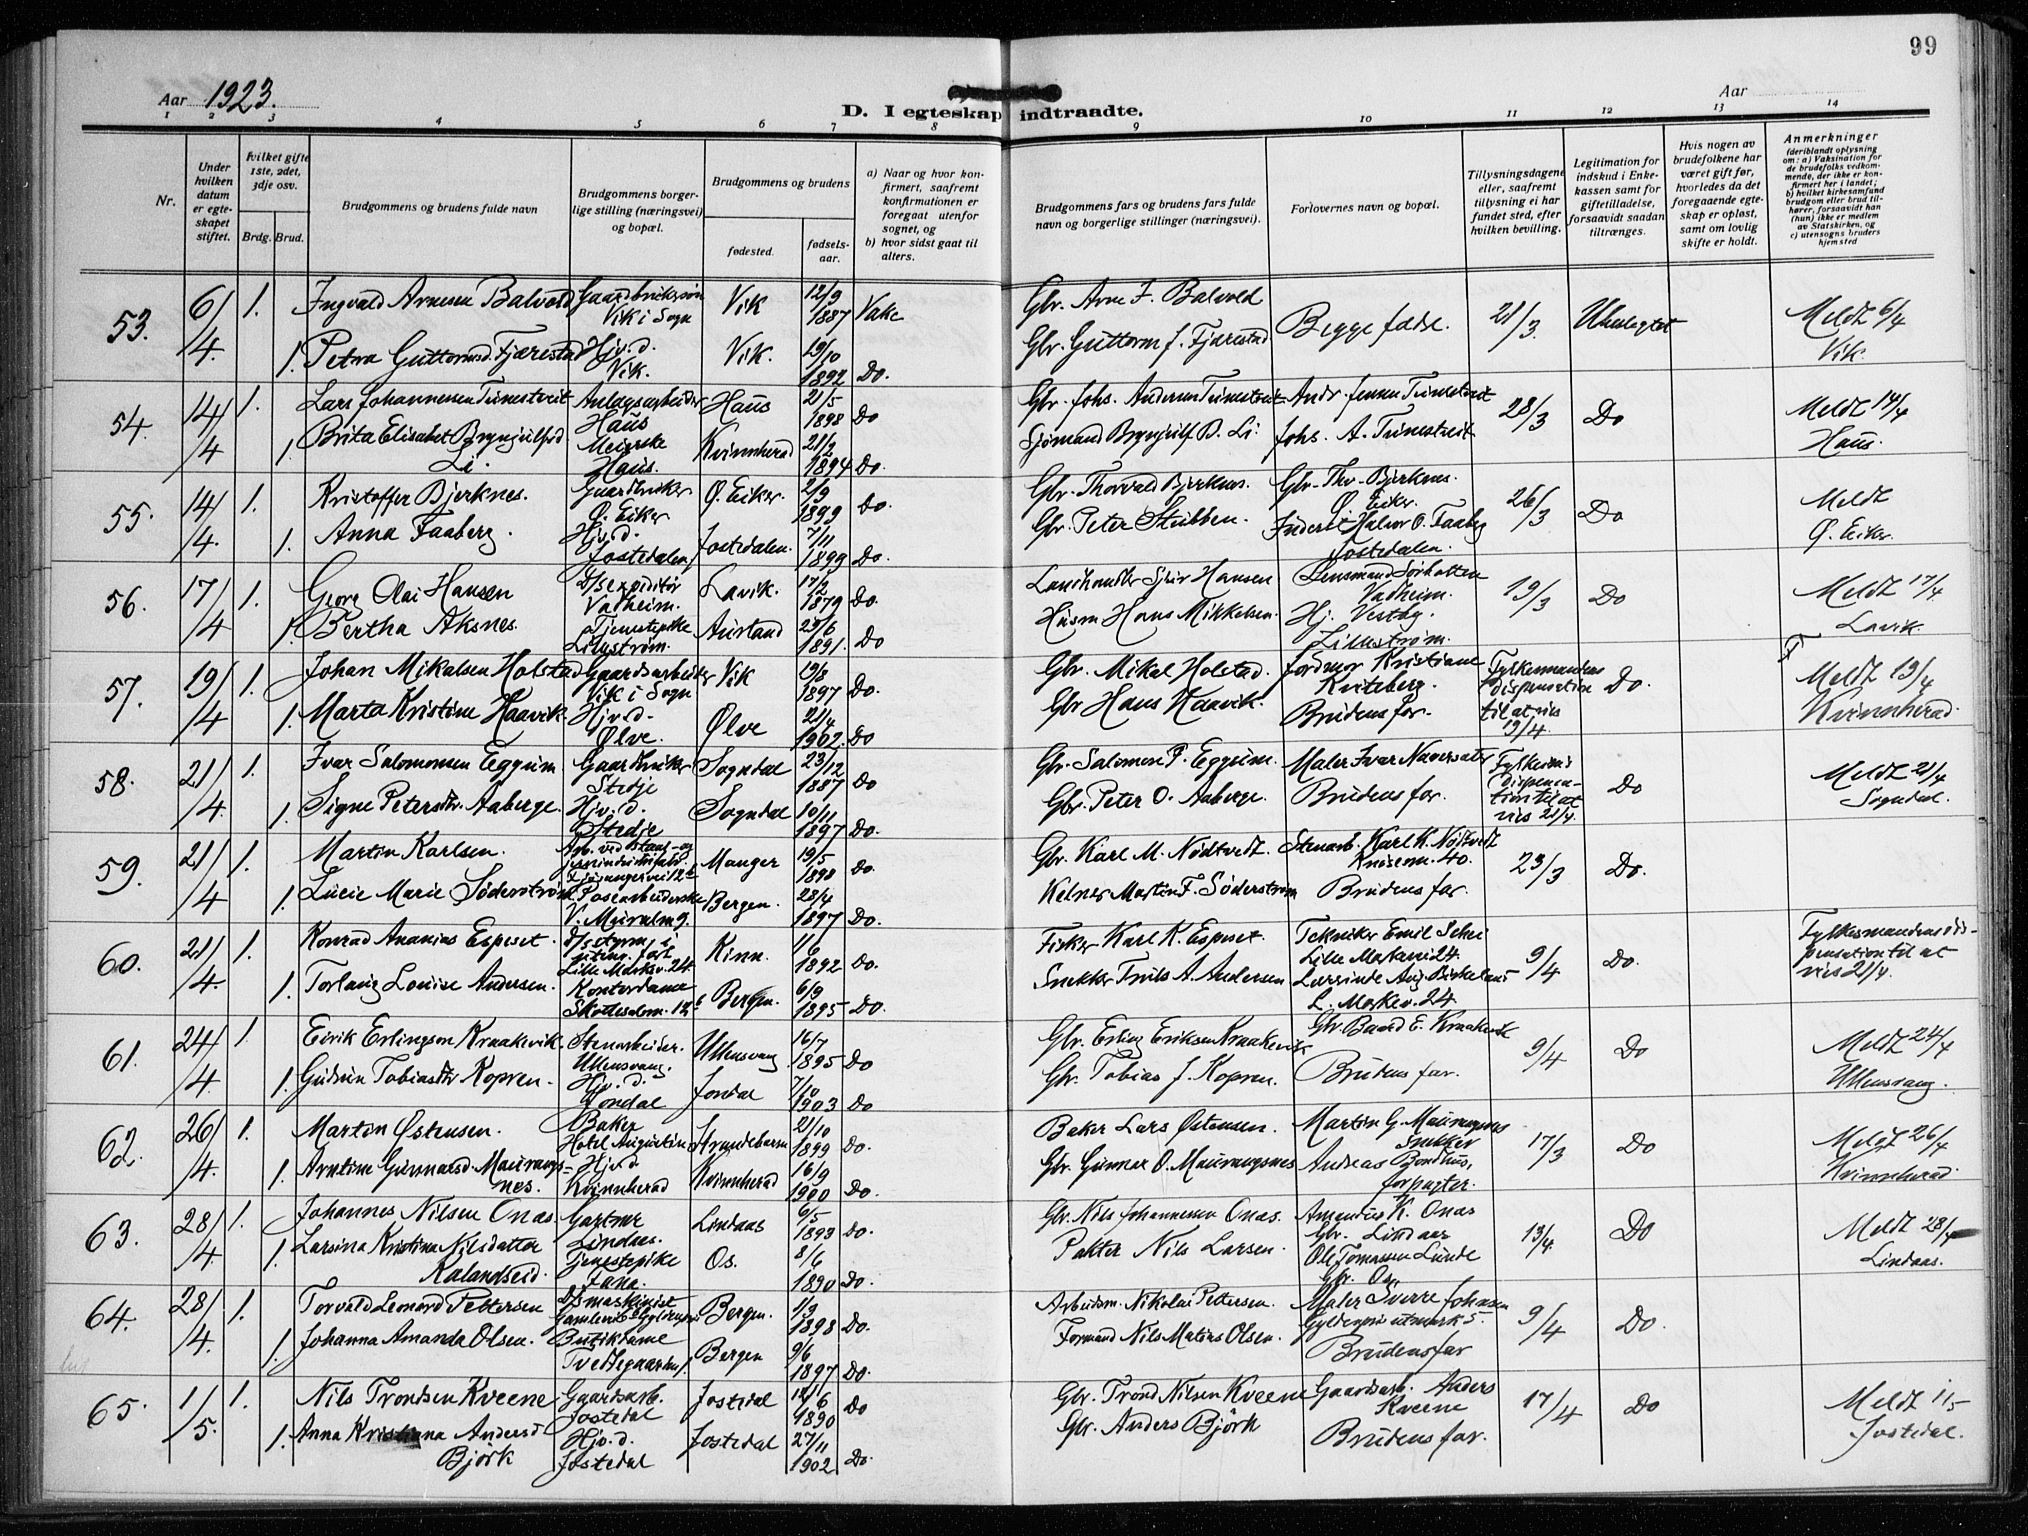 99
Aar 1923.
Aar
D. I egteskap indtraadte.
1 2 3 4 5 6 7 8 9 10 11 12 13 14
Nr.
Under hvilken datum er egteskapet stiftet.
Hvilket gifte 1ste, 2det, 3dje osv.
Brdg. Brud.
Brudgommens og brudens fulde navn
Brudgommens borgerlige stilling (næringsvei) og bopæl.
Brudgommens og brudens
fødested. fødselsaar.
a) Naar og hvor konfirmert, saafremt konfirmationen er foregaat utenfor sognet, og
b) hvor sidst gaat til alters.
Brudgommens fars og brudens fars fulde navn og borgerlige stillinger (næringsvei).
Forlovernes navn og bopæl.
Tillysningsdagene eller, saafremt tillysning ei har fundet sted, efter hvilken bevilling.
Legitimation for indskud i Enkekassen samt for giftetilladelse, forsaavidt saadan tiltrænges.
Hvis nogen av brudefolkene har været gift før, hvorledes da det foregaaende egteskap er opløst, samt om lovlig skifte er holdt.
Anmerkninger
(deriblandt oplysning om: a) Vaksination for de brudefolks vedkommende, der ikke er konfirmert her i landet; b) hvilket kirkesamfund brudgom eller brud tilhører, forsaavidt han (hun) ikke er medlem av Statskirken, og c) utensogns bruders hjemsted
53. 6/4. 1. Ingvald Arnesen Balvold Vik i Sogn Vik 12/9 1887 Gbr. Arne J. Balvold Begge fedre. 21/3. Meldt 6/4 Vik.
1. Petra Guttormsd. Fjærestad Hjv.d. Vik. Vik. 19/10 1892 Do. Gbr. Guttorm J. Fjærestad
54. 14/4 1. Lars Johannessen Tunestveit Anlægsarbeider Haus Haus 21/5 1898 Do Gbr. Johs. Andersen Tunestveit Andr. Jensen Tunestveit 28/3 Do Meldt 14/4 Haus.
1. Brita Elisabet Brynjulfsd. Li. Meierske Haus. Kvinnherad 21/2 1894 Do. Sjømand Brynjulf B. Li. Johs. A. Tunestveit
55. 14/4. 1. Kristoffer Bjerknes. Gaardbruker Ø. Eiker Ø. Eiker. 2/9 1899 Do. Gbr. Thorvald Bjerknes. Gbr. Thv. Bjerknes. Ø. Eiker. 26/3 Do Meldt Ø. Eiker.
1. Anna Faaberg. Hjv.d. Jostedalen Jostedalen. 7/11 1899 Do. Gbr. Peter Stubben. Halvor O. Faaberg Jostedalen.
56. 17/4 1. Georg Olai Hansen D/s expeditør Vadheim. Lavik. 17/2 1879 Do. Landhandler Hansen Lensmand Sørbotten Vadheim. 19/3 Do Meldt 17/4 Lavik.
1. Bertha Aksnes. Tjenestepike Lillestrøm. 29/6 1891. Do Husm Hans Mikkelsen. Hj. Vestby. Lillestrøm.
57. 19/4 1. Johan Mikalsen Holstad Gaardsarbeider Vik i Sogn Vik 19/8 1897 Do. Gbr. Mikal Holstad. Jordmor Kristiane Kviteberg. Fylkesmandens dispensation til at vies 19/4. Do. Meldt 19/4 Kvinnherad.
1. Marta Kristine Haavik. Hjv.d. Ølve. Ølve 21/4 1902. Do Gbr Hans Haavik. Brudens far.
58. 21/4. 1. Ivar Salomonsen Eggum. Gaardbruker Stedje Sogndal 23/12 1887 Do Gbr. Salomon P. Eggum. Maler Ivar Navarsater dispensation til at vies 21/4. Do Meldt 21/4 Sogndal.
1. Signe Petersdtr. Aaberge. Hjv.d. Stedje Sogndal 10/11 1897 Do. Gbr. Peter O. Aaberge. Brudens far.
59. 21/4 1. Martin Karlsen. Manger 19/5 1898 Do. Gbr. Karl M. Nødtvedt. Stenarb. Karl K. Nødtvedt 23/3 Do.
1. Lucie Marie Søderstrøm Posearbeiderske Bergen. 28/4 1897 Do. Kelner Martin F. Søderstrøm Brudens far.
60. 21/4. 1. Konrad Ananias Espeset. Lille Markev. 24. Kinn. 1892 Do. Fisker Karl K. Espeset. Tekniker Emil Schei Lille Markevei 24. 9/4 Do. Fylkesmandens dispensation til at vies 21/4.
1. Torlaug Louise Andersen. Kontordame Bergen. 6/9 1895 Do. Snekker Truls A. Andersen L. Markev. 24.
61. 24/4. 1. Eirik Erlingson Kraakevik. Stenarbeider. Ullensvang. Ullensvang 16/7 1895 Do Gbr. Erling Eriksen Kraakevik Gbr. Baard E. Kraakevik 9/4 Do Meldt 24/4 Ullensvang.
1. Gudrun Tobiasdtr Kopren. Hjv.d. Jondal Jondal 7/10 1903 Do Gbr. Tobias J. Kopren. Brudens far.
62. 26/4. 1. Martin Østensen. Baker Hotel Augustin Strandebarm 21/10 1899 Do. Baker Lars Østensen. Martin G. Maurangsnes snekker 17/3 Do Meldt 26/4 Kvinnherad
1. Arntine Gunnarsd. Maurangsnes. Hjv.d Kvinnherad Kvinnherad 16/9 1900 Do. Gbr. Gunnar O. Maurangsnes Andreas Bondhus, forpagter.
63. 28/4. 1. Johannes Nilsen Onas. Gartner Lindaas. Lindaas 6/5 1893 Do. Gbr. Nils Johannessen Onas. Amandus K. Onas Gbr. Lindaas 13/4. Do Meldt 28/4 Lindaas.
1. Larsina Kristina Nilsdatter Kalandseid. Tjenestepike Fana. Os. 8/6 1890 Do. Pakter Nils Larsen. Ole Tomassen Lunde Gbr. Os.
64. 28/4. 1. Torvald Leonard Pettersen D/s maskinist Bergen. 1/9 1898 Do. Arbeidsm. Nikolai Pettersen. Maler Sverre Johnsen 9/4 Do.
1. Johanna Amanda Olsen. Butikdame Bergen 9/6 1897 Do. Formand Nils Matias Olsen. Brudens far
65. 1/5. 1. Nils Trondsen Kveene Gaardsarb. Jostedal Jostedal 12/6 1890 Do Gbr. Trond Nilsen Kveene Gaardsarb. Anders Kveene 17/4 Do Meldt 1/5 Jostedal.
1. Anna Kristiana Andersd Bjørk Hjv.d. Jostedal Jostedal 27/11 1902 Do. Gbr. Anders Bjørk Brudens far.